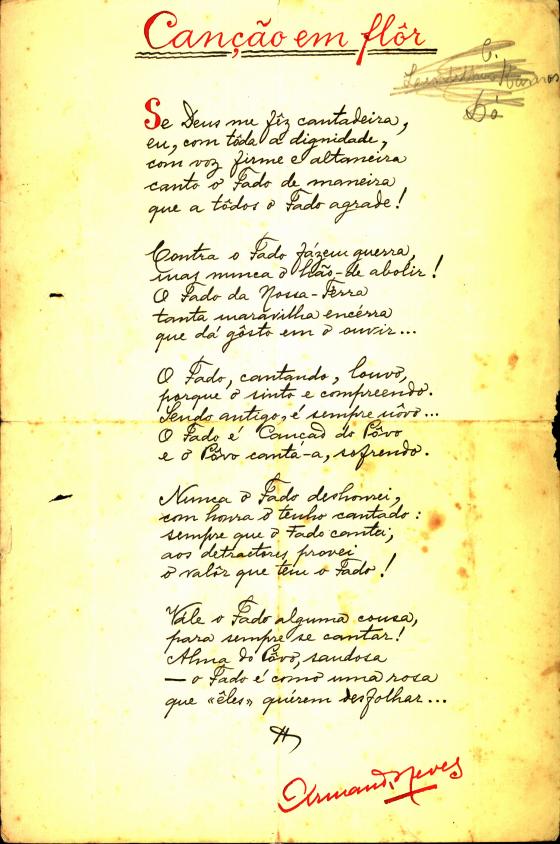 Canção em flôr
Dó
Se Deus me fêz cantadeira,
eu, com tôda a dignidade,
com voz firme e altaneira
canto o Fado de maneira
que a tôdos o Fado agrade!
Contra o Fado fázem guerra,
mas nunca o hão-de abolir!
O Fado da Nossa-Terra
tanta maravilha encérra
que dá gôsto em o ouvir...
O Fado, cantando, louvo,
porque o sinto e compreendo.
Sendo antigo, é sempre nôvo...
O Fado é Cançad do Pôvo
e o Pôvo cantá-a, sofrendo.
Nunca o Fado deshonrei,
com honra o tenho cantado:
sempre que o Fado cantei,
aos detractores provei
o valôr que tem o Fado!
Vale o Fado alguma cousa,
para sempre se cantar!
Alma do Pôvo, saudosa
— o Fado é como uma rosa
que «êles» quérem desfolhar...
Armando Neves